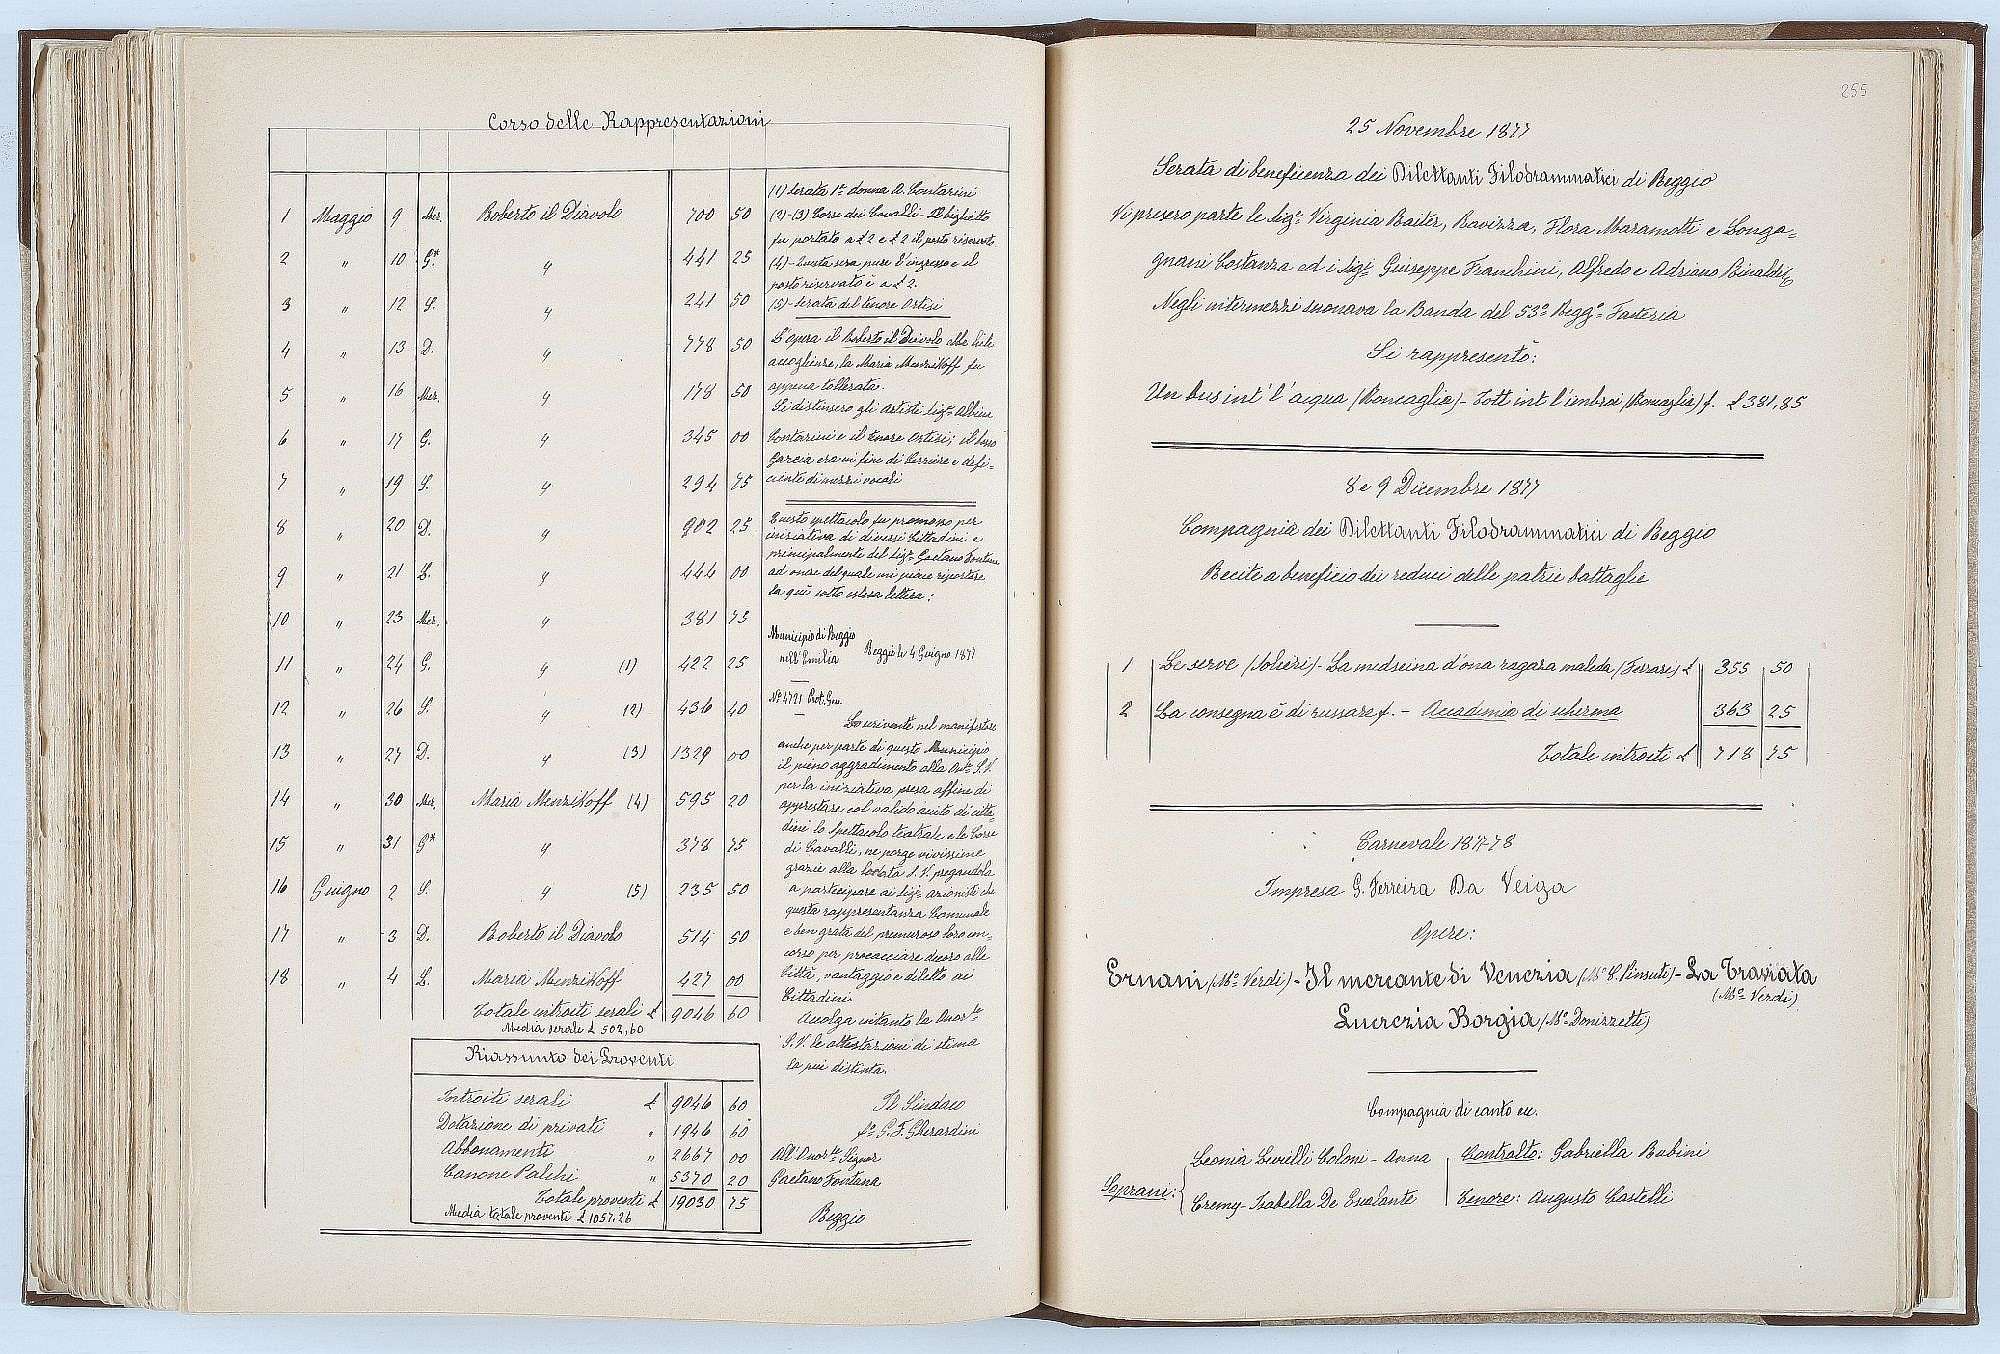 Corso delle Rappresentazioni
1 Maggio 9 Mer. Roberto il Diavolo 700 50
2 " 10 G.* " 441 25
3 " 12 S. " 241 50
4 " 13 D. " 778 50
5 " 16 Mer. " 178 50
6 " 17 G. " 345 00
7 " 19 S. " 294 75
8 " 20 D. " 902 25
9 " 21 L. " 444 00
10 " 23 Mer. " 381 75
11 " 24 G. " (1) 422 25
12 " 26 S. " (2) 436 40
13 " 27 D. " (3) 1329 00
14 " 30 Mer. Maria Menzikoff (4) 595 20
15 " 31 G* " 378 75
16 Giugno 2 S. " (5) 235 50
17 " 3 D. Roberto il Diavolo 514 50
18 " 4 L. Maria Menzikoff 427 00
Totale introiti serali £ 9046 60
Media serale £ 502,60
Riassunto dei Proventi
Introiti serali £ 9046 60
Dotazione di privati " 1946 60
Abbonamenti " 2667 00
Canone Palchi " 5370 20
Totale proventi £ 19030 75
Media totale proventi £ 1057.26
(1) Serata 1ª donna A. Contarini
(2)-(3) Corse dei Cavalli - Il biglietto
fu portato a £ 2 e £ 2 il posto riservato
(4) - Questa sera pure l'ingresso e il
posto riservato è a £ 2.
(5) - Serata del tenore Ortisi
L'opera il Roberto il Diavolo ebbe liete
accoglienze, la Maria Menzikoff fu
appena tollerata.
Si distinsero gli artisti Sigri Albina
Contarini e il tenore Ortisi; il basso
Garcia era in fine di carriera e defi-
ciente di mezzi vocali
Questo spettacolo fu promosso per
iniziativa di diversi Cittadini e
principalmente del Sigr Gaetano Fontana
ad onore del quale mi piace riportare
la qui sotto estesa lettera:
Municipio di Reggio
nell'Emilia
Reggio li 4 Giugno 1877
No 4721 Prot. Gen.
Lo scrivente nel manifestare
anche per parte di questo Municipio
il pieno aggradimento alla Onle S. V.
per la iniziativa presa affine di
apprestare col valido aiuto di citta-
dini lo Spettacolo teatrale e le Corse
di Cavalli, ne porge vivissime
grazie alla lodata S. V. pregandola
a partecipare ai Sigri azionisti che
questa rappresentanza Comunale
è ben grata del premuroso loro con-
corso per procacciare decoro alla
Città, vantaggio e diletto ai
Cittadini.
Accolga intanto la Onorle
S. V. le attestazioni di stima
la più distinta.
Il Sindaco
fo G. F. Gherardini
All'Onorle Signor
Gaetano Fontana
Reggio
255
25 Novembre 1877
Serata di beneficenza dei Dilettanti Filodrammatici di Reggio
Vi presero parte le Sigre Virginia Baiter, Ravizza, Flora Maramotti e Longa=
gnani Costanza ed i Sigri Giuseppe Franchini, Alfredo e Adriano Rinaldi
Negli intermezzi suonava la Banda del 53º Reggº Fanteria
Si rappresentò:
Un bus int' l'acqua (Roncaglia) - Tott int l'imbroi (Roncaglia) f. £ 381,85
8 e 9 Dicembre 1877
Compagnia dei Dilettanti Filodrammatici di Reggio
Recite a beneficio dei reduci delle patrie battaglie
1 Le serve (Solieri) - La medseina d'ona ragaza maleda (Ferrari) £ 355 50
2 La consegna è di russare f. - Accademia di scherma 363 25
Totale introiti £ 718 75
Carnevale 1877-78
Impresa G. Ferreira Da Veiga
Opere:
Ernani (Mº Verdi) - Il mercante di Venezia (Mº C. Pinsuti) - La Traviata
(Mº Verdi)
Lucrezia Borgia (Mº Donizzetti)
Compagnia di canto ecc.
Soprani: Leonia Levielli Coloni - Anna
Cremy - Isabella De Escalante
Contralto: Gabriella Rubini
Tenore: Augusto Castelli